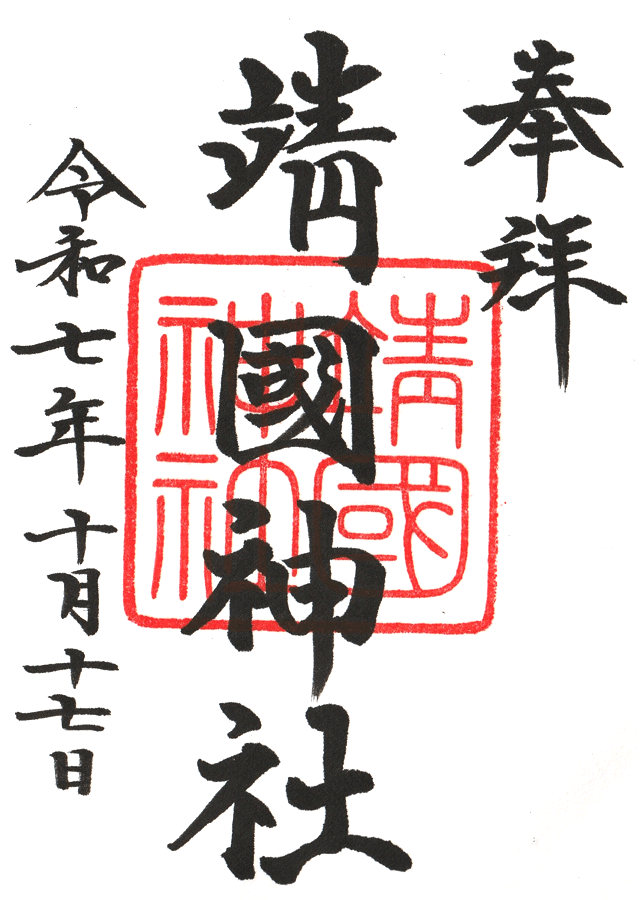 奉拜
靖國神社
令和七年十月十七日
靖國
神社